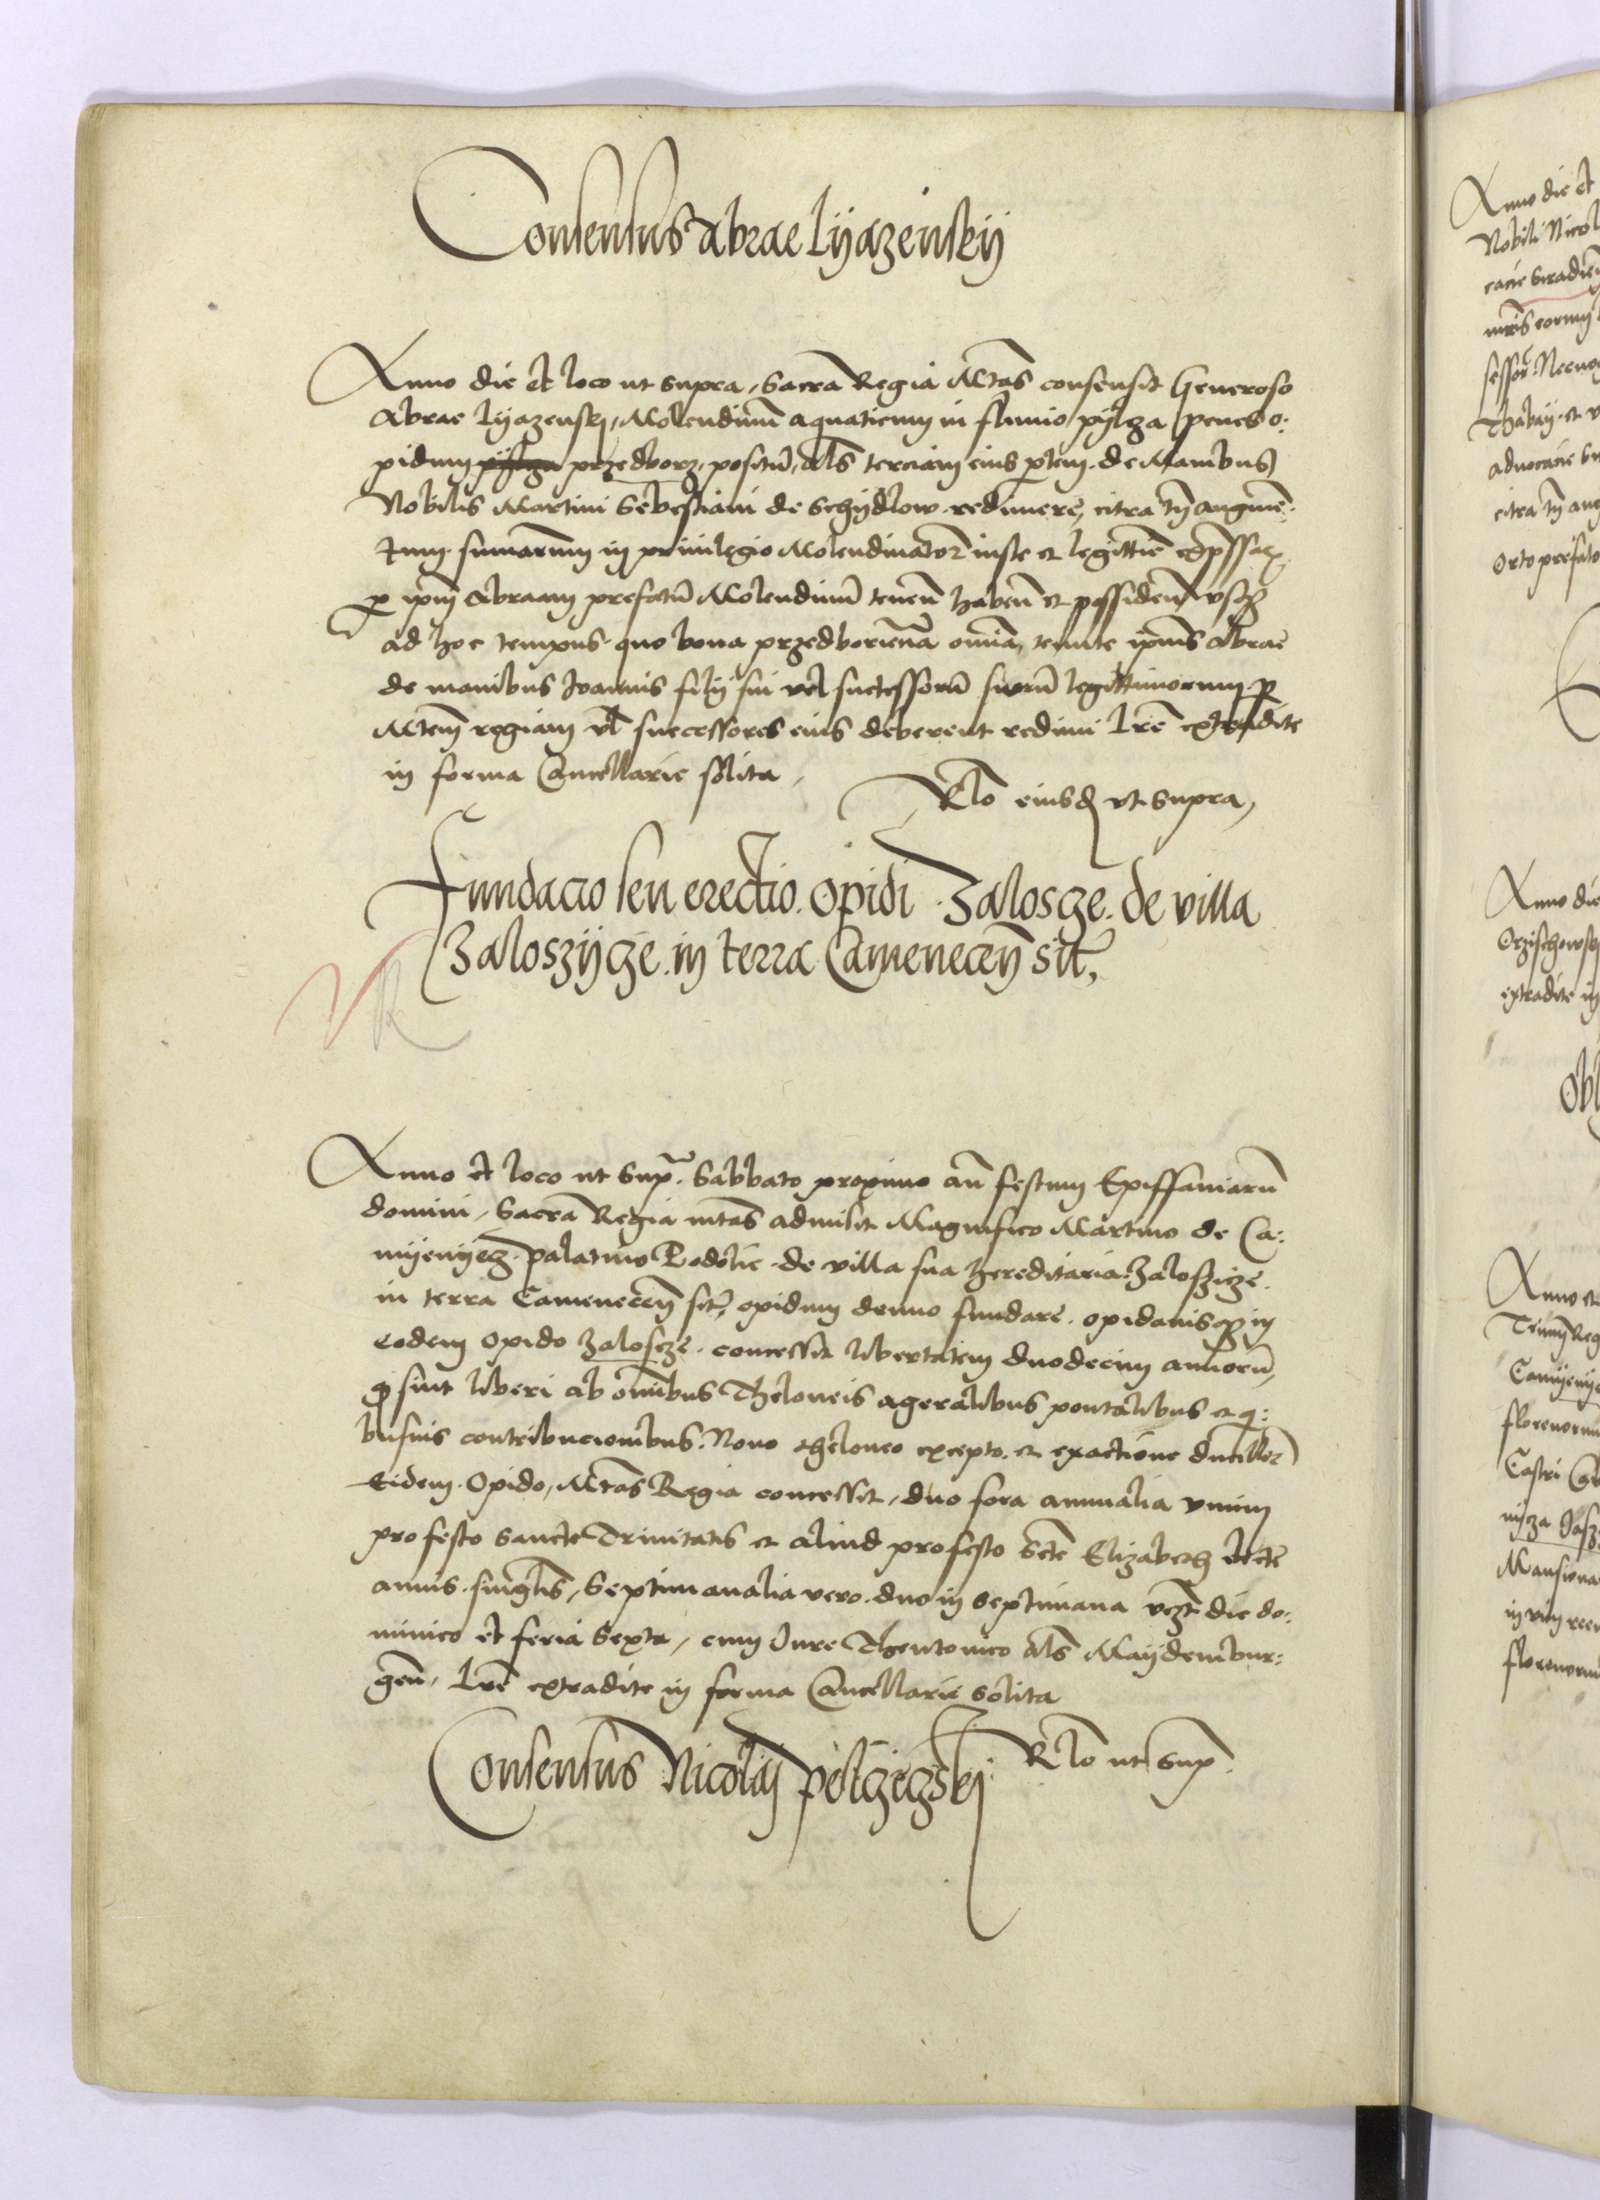 Consensus Abrae Lyazenskij
Anno die et loco ut supra, Sacra Regia Mtas consensit Generoso
Abrae Lyazenskj, Molendinum aquaticum in fluuio pylcza penes o:
pidum pylcza przedborz, positū, als terciam eius ptem de Manibus
Nobilis Martini Sebestiani de Schydlow redimere, citra tn̄ augmē
tum summarum in priuilegio Molendinator iuste et legittie exp̄ssar
p ipm̄ Abraam prefatū Molendinū teneñ habeñ et possideñ vsq
ad hoc tempus quo bona przedborieñ omnia, tenute ipius Abrae
de manibus Ioannis filij sui vel successorū suorū legittimorum p
Mtem̄ regiam vl successores eius deberent redimi Lrē extradite
in forma Cancellarie solita,
Rlo eiusd vt supra,
Fundacio seu erectio Opidi Zaloscze de villa
Zaloszijcze in terra Camenecen̄ sit,
Anno et loco ut sup Sabbato proximo añ festum Epiffaniarū
domini, Sacra Regia mtas admisit Magnifico Martino de Ca:
myenyecz palatino Podolie de villa sua hereditaria Zaloszicze
in terra Camenecen̄ sit, opidum denuo fundare opidanisq in
eodem Opido Zaloscze concessit libertatem duodecim annorū,
q sint liberi ab omibus Theloneis ageralibus pontalibus et q:
busuis contribucionibus, Nouo theloneo excepto et exactione ducillor
Eidem Opido, Mtas Regia concessit, duo fora annualia vnum
pro festo Sancte Trinitatis et aliud pro festo Scte Elizabeth electe
annis singlis, Septimanalia vero duo in septimana vezt die do:
minico et feria Sexta, cum Iure Theutonico als Maydembur:
geñ, Lrē extradite in forma Cancellarie solita
Rlo ut sup
Consensus Nicolaj pelcziczskj